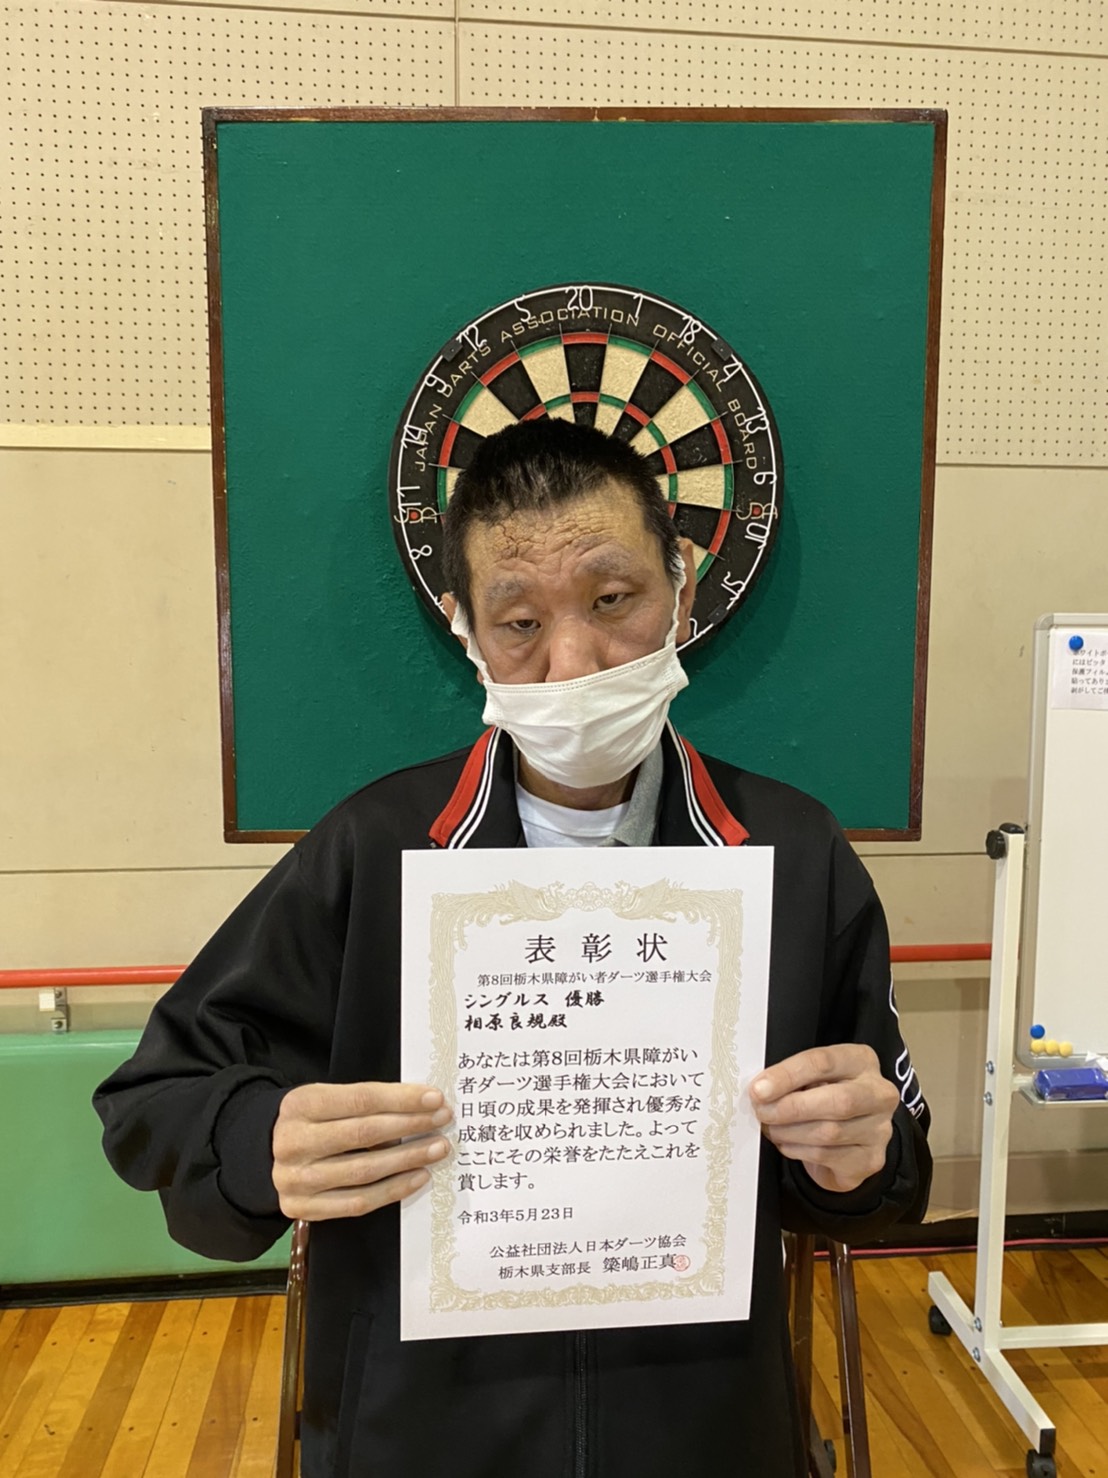 JAPAN DARTS ASSOCIATION OFFICIAL BOARD
9
12
5
20
1
18
4
13
6
10
15
2
14
11
8
表彰状
第8回栃木県障がい者ダーツ選手権大会
シングルス 優勝
相原良規殿
あなたは第8回栃木県障がい
者ダーツ選手権大会において
日頃の成果を発揮され優秀な
成績を収められました。よって
ここにその栄誉をたたえこれを
賞します。
令和3年5月23日
公益社団法人日本ダーツ協会
栃木県支部長 築嶋正真